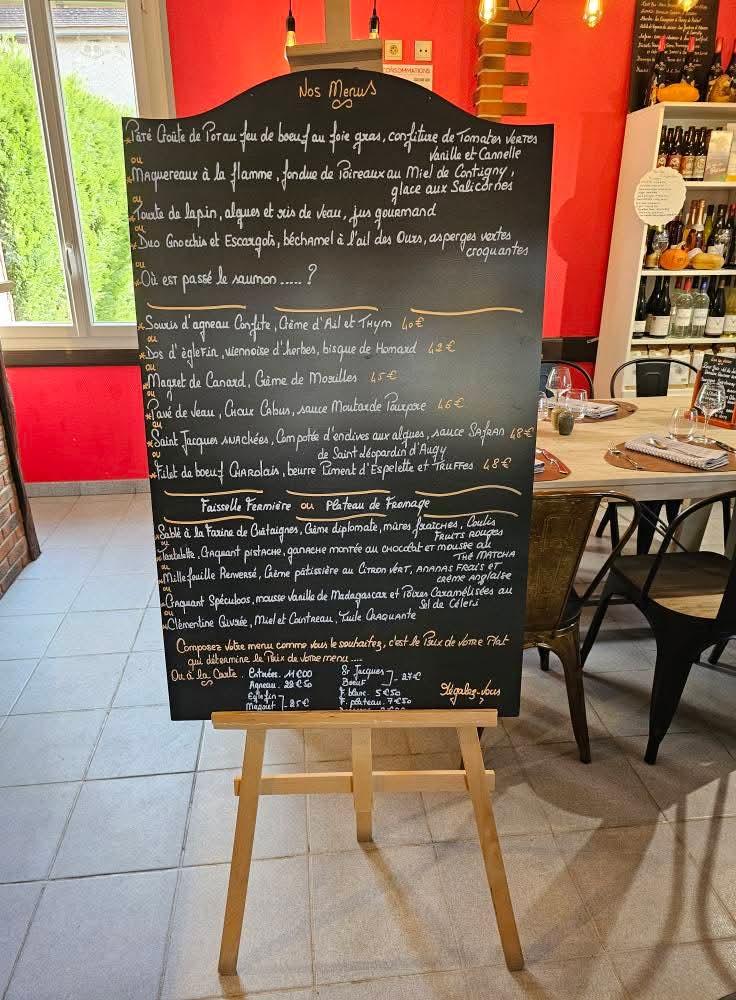 Nos Menus
*Pâté Croûte de Pot au feu de boeuf au foie gras, confiture de Tomates vertes
Vanille et Cannelle
ou
*Maquereaux à la flamme, fondue de Poireaux au Miel de Contigny,
glace aux Salicornes
ou
*Tourte de lapin, algues et ris de veau, jus gourmand
ou
*Duo Gnocchis et Escargots, béchamel à l'ail des Ours, asperges vertes
croquantes
ou
*Où est passé le saumon ..... ?
*Souris d'agneau Confite, Crème d'Ail et Thym 40€
ou
*Dos d'églefin, viennoise d'herbes, bisque de Homard 42€
ou
*Magret de Canard, Crème de Morilles 45€
ou
*Pavé de veau, Choux Cabus, sauce Moutarde Pourpre 46€
ou
*Saint Jacques snackées, Compotée d'endives aux algues, sauce Safran 48€
de Saint Léopardin d'Augy
ou
*Filet de boeuf Charolais, beurre Piment d'Espelette et Truffes 48€
Faisselle Fermière ou Plateau de Fromage
*Sablé à la Farine de Châtaignes, Crème diplomate, mûres fraîches, Coulis
Fruits rouges
ou
*Tartelette, Craquant pistache, ganache montée au chocolat et mousse au
Thé Matcha
ou
*Millefeuille Renversé, Crème pâtissière au Citron vert, ananas frais et
crème anglaise
ou
*Craquant Spéculoos, mousse vanille de Madagascar et Poires Caramélisées au
Sel de Céleri
ou
*Clémentine Givrée, Miel et Cointreau, Tuile Craquante
Composez votre menu comme vous le souhaitez, c'est le Prix de votre Plat
qui détermine le Prix de votre menu ....
Ou à la Carte . Entrées . 11€00
Agneau . 22€50
Eglefin
Magret ]- 25€
St Jacques
Boeuf ]- 27€
F. blanc . 5€50
F. plateau . 7€50
Régalez-vous
CONSOMMATIONS